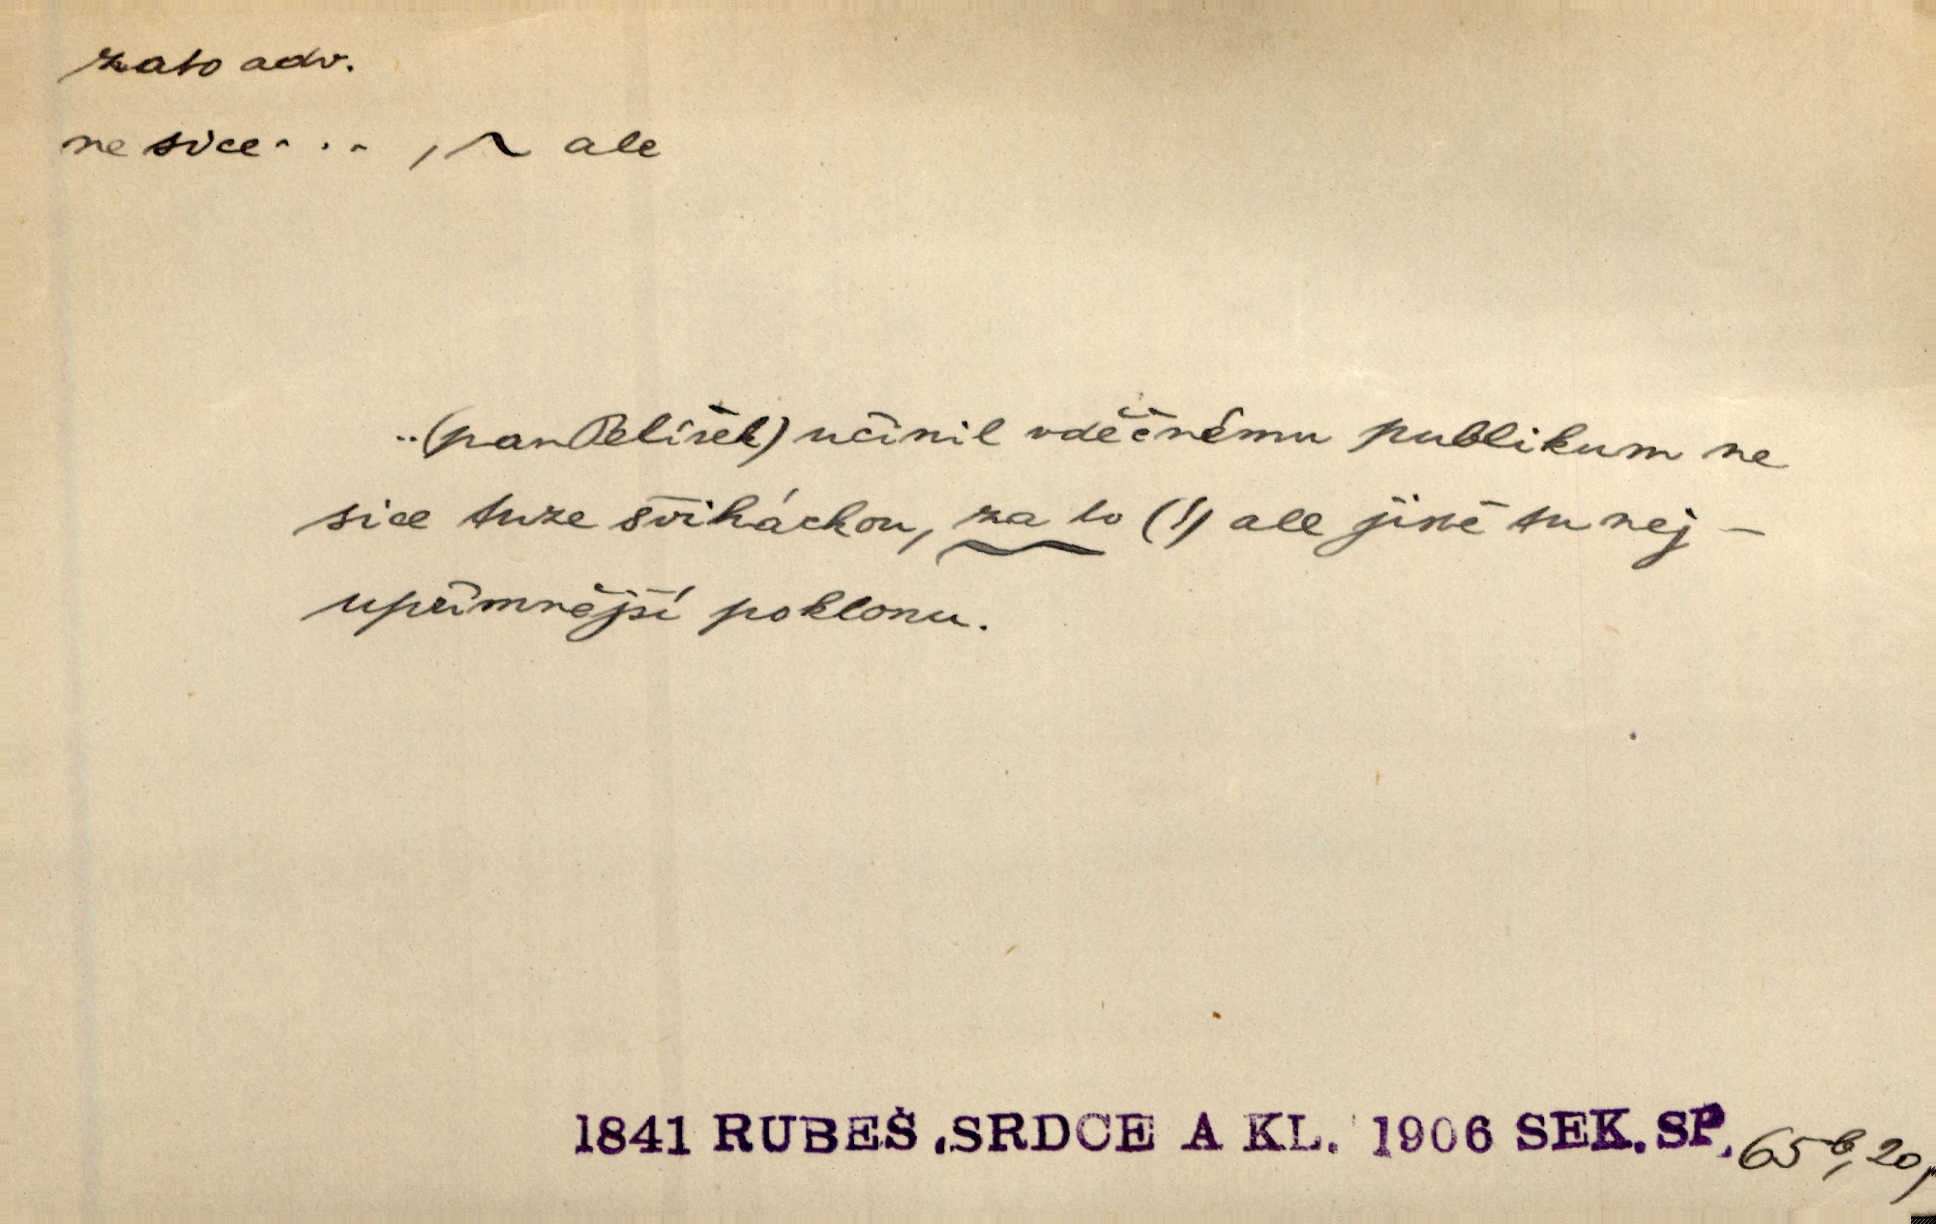 zato adv.
ne sice . . . , ~ ale
..(pan Pelíšek) učinil vděčnému publikum ne
sice tuze šviháckou, za to (!) ale jistě tu nej-
upřímnější poklonu.
1841 RUBEŠ .SRDCE A KL. 1906 SEK. SP. 65b, 20,